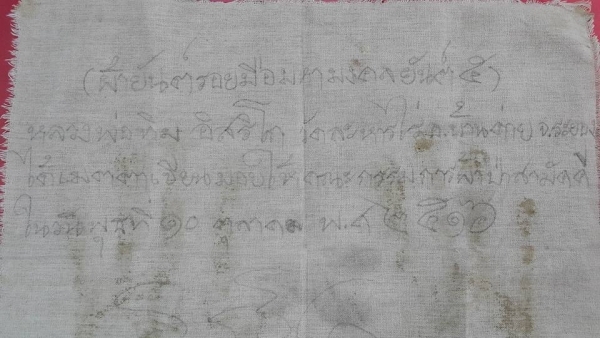 (ผ้ายันต์รอยมือมหามงคลยันต์ ๕)
หลวงพ่อทิม อิสริโก วัดละหารไร่ อ.บ้านค่าย จ.ระยอง
ได้เมตตาเขียนมอบให้คณะกรรมการผ้าป่าสามัคคี
ในวันพุธที่ ๑๐ ตุลาคม พ.ศ ๒๕๑๖